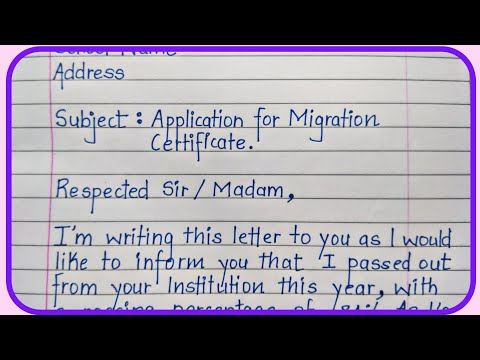 School Name
Address
Subject : Application for Migration
Certificate.
Respected Sir / Madam,
I'm writing this letter to you as I would
like to inform you that I passed out
from your Institution this year, with
a passing percentage of